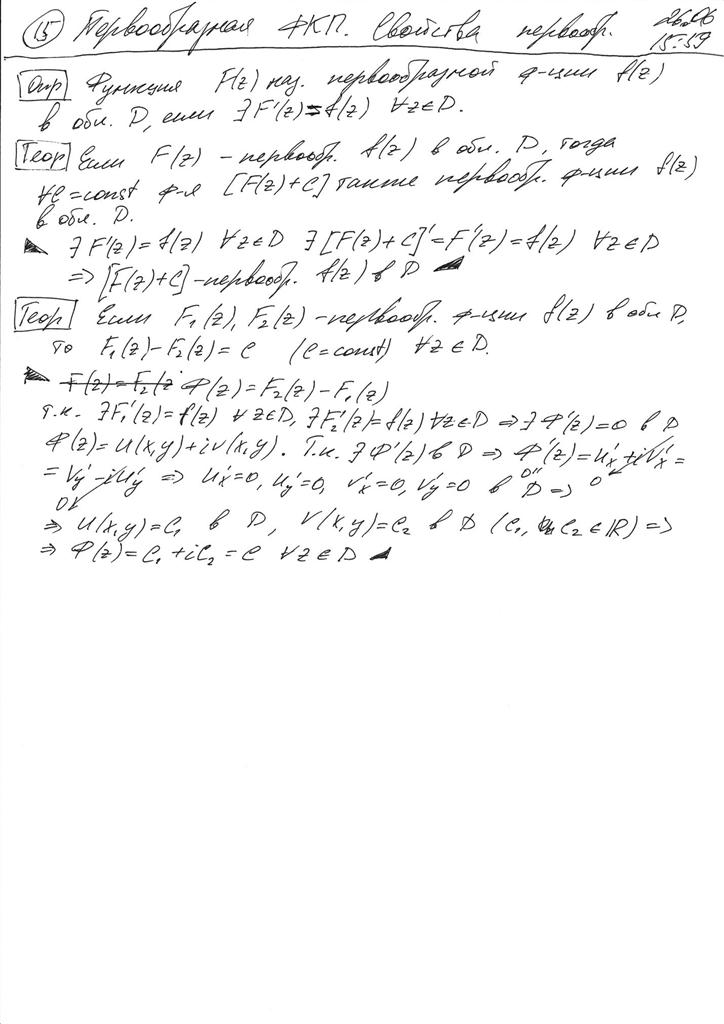 15 Первообразная ФКП. Свойства первообр. 26.06 15:59
Опр Функция F(z) наз. первообразной ф-ции f(z)
в обл. D, если ∃ F'(z)=f(z) ∀z∈D.
Теор Если F(z) – первообр. f(z) в обл. D, тогда
∀C=const ф-я [F(z)+C] также первообр. ф-ции f(z)
в обл. D.
∃ F'(z)=f(z) ∀z∈D ∃ [F(z)+C]'=F'(z)=f(z) ∀z∈D
⇒ [F(z)+C] – первообр. f(z) в D
Теор Если F₁(z), F₂(z) – первообр. ф-ции f(z) в обл D,
то F₁(z)–F₂(z)=C (C=const) ∀z∈D.
F(z)=F₂(z Φ(z)=F₂(z)–F₁(z)
т.к. ∃F₁'(z)=f(z) ∀z∈D, ∃F₂'(z)=f(z) ∀z∈D ⇒ ∃Φ'(z)=0 в D
Φ(z)=U(x,y)+iV(x,y). Т.к. ∃Φ'(z) в D ⇒ Φ'(z)=U'x+iV'x=
=V'y–iU'y ⇒ U'x=0, U'y=0, V'x=0, V'y=0 в D ⇒ 0'' 0
0
⇒ U(x,y)=C₁ в D, V(x,y)=C₂ в D (C₁, C₂∈ℝ) ⇒
⇒ Φ(z)=C₁+iC₂=C ∀z∈D